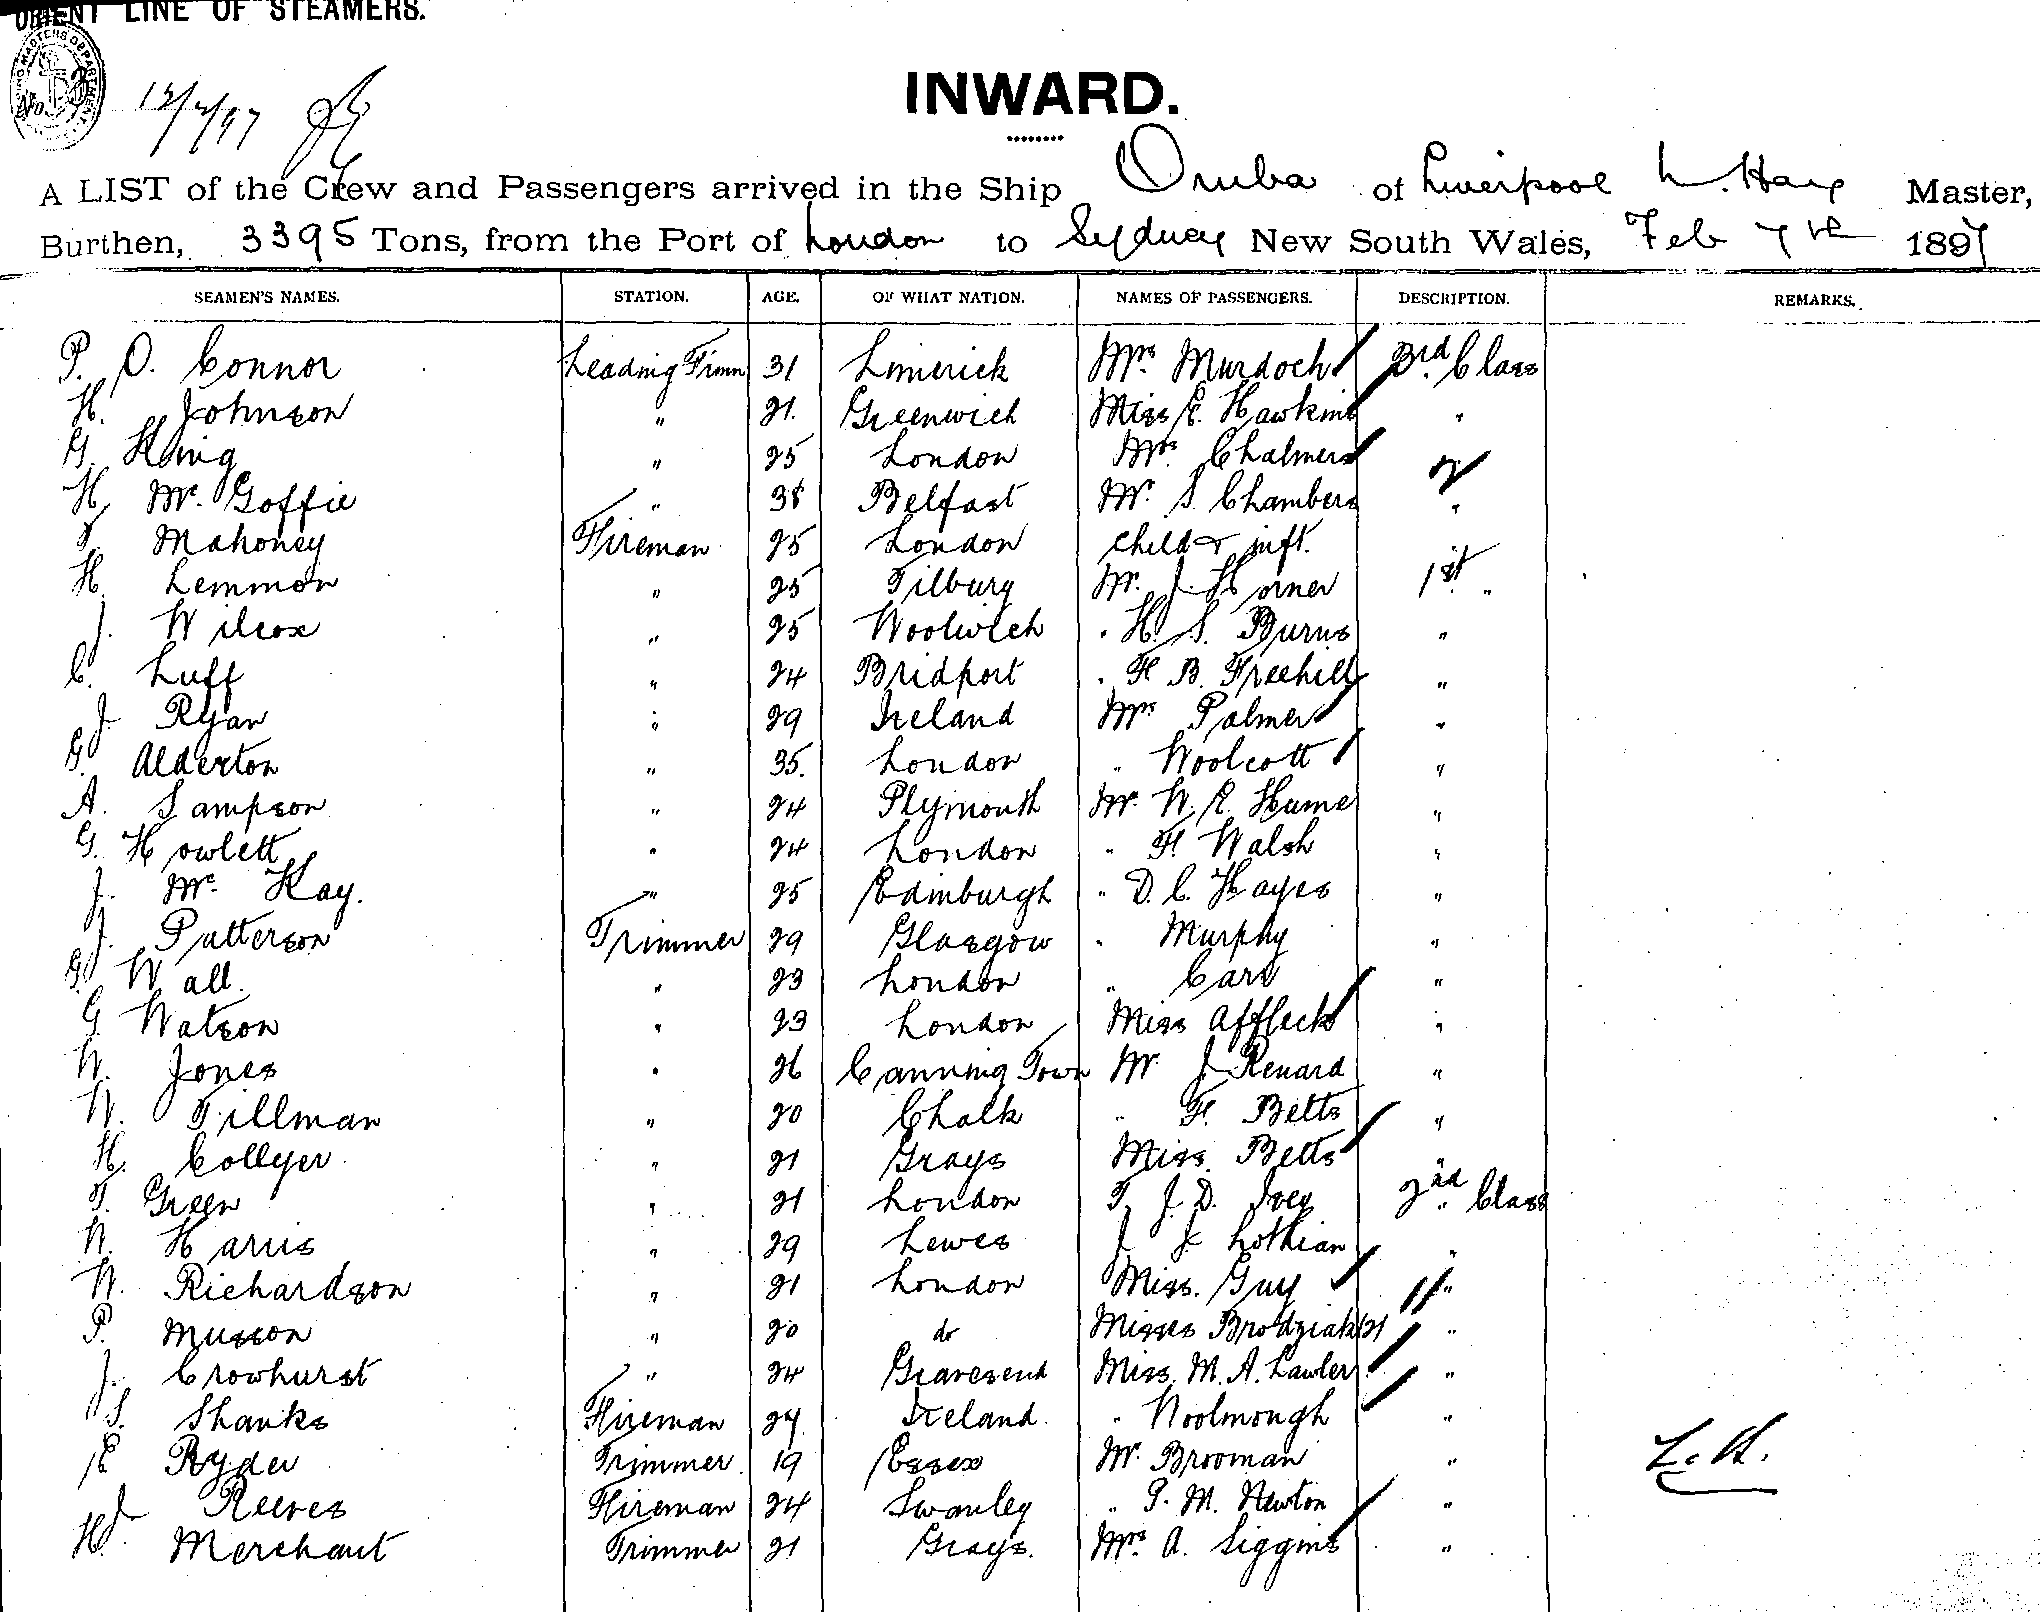 ORIENT LINE OF STEAMERS.
12/2/97
INWARD.
A LIST of the Crew and Passengers arrived in the Ship Oruba of Liverpool L. Hay Master,
Burthen, 3395 Tons, from the Port of London to Sydney New South Wales, Feb 7th 1897
SEAMEN'S NAMES. STATION. AGE. OF WHAT NATION. NAMES OF PASSENGERS. DESCRIPTION. REMARKS.
P. O. Connor Leading Firmn 31 Limerick Mrs Murdoch 3rd Class
H. Johnson " 21. Greenwich Miss E. Hawkins "
G. King " 25 London Mrs. Chalmers "
H. Mc. Goffie " 38 Belfast Mr. S. Chambers "
T. Mahoney Fireman 25 London Child & inft.
H. Lemmon " 25 Tilbury Mr. J. Horner 1st "
J. Wilcox " 25 Woolwich " H. S. Burns "
C. Luff " 24 Bridport " F. B. Freehill "
J. Ryan " 29 Ireland Mrs Palmer "
G. Alderton " 35. London " Woolcott "
A. Sampson " 24 Plymouth Mr. W. E. Hume "
G. Howlett " 24 London " F. Walsh "
J. Mc. Kay. " 25 Edinburgh " D. C. Hayes "
J. Patterson Trimmer 29 Glasgow " Murphy "
G. Wall. " 23 London " Carr "
G. Watson " 23 London Miss Affleck "
W. Jones " 26 Canning Town Mr J. Renard "
W. Tillman " 20 Chalk " F. Betts "
H. Collyer " 21 Grays Miss. Betts "
T. Green " 21 London T. J. D. Ivey 2nd Class
W. Harris " 29 Lewes J. Lothian "
W. Richardson " 21 London Miss. Guy "
P. Musson " 20 do Misses Brodziak (2) "
J. Crowhurst " 24 Gravesend Miss. M. A. Lawler "
S. Shanks Fireman 24 Ireland. " Woolmough "
E Ryder Trimmer 19 Essex Mr. Brooman "
J. Reeves Fireman 24 Swanley " P. M. Newton "
H. Merchant Trimmer 21 Grays. Mrs. A. Siggins "
L. H.